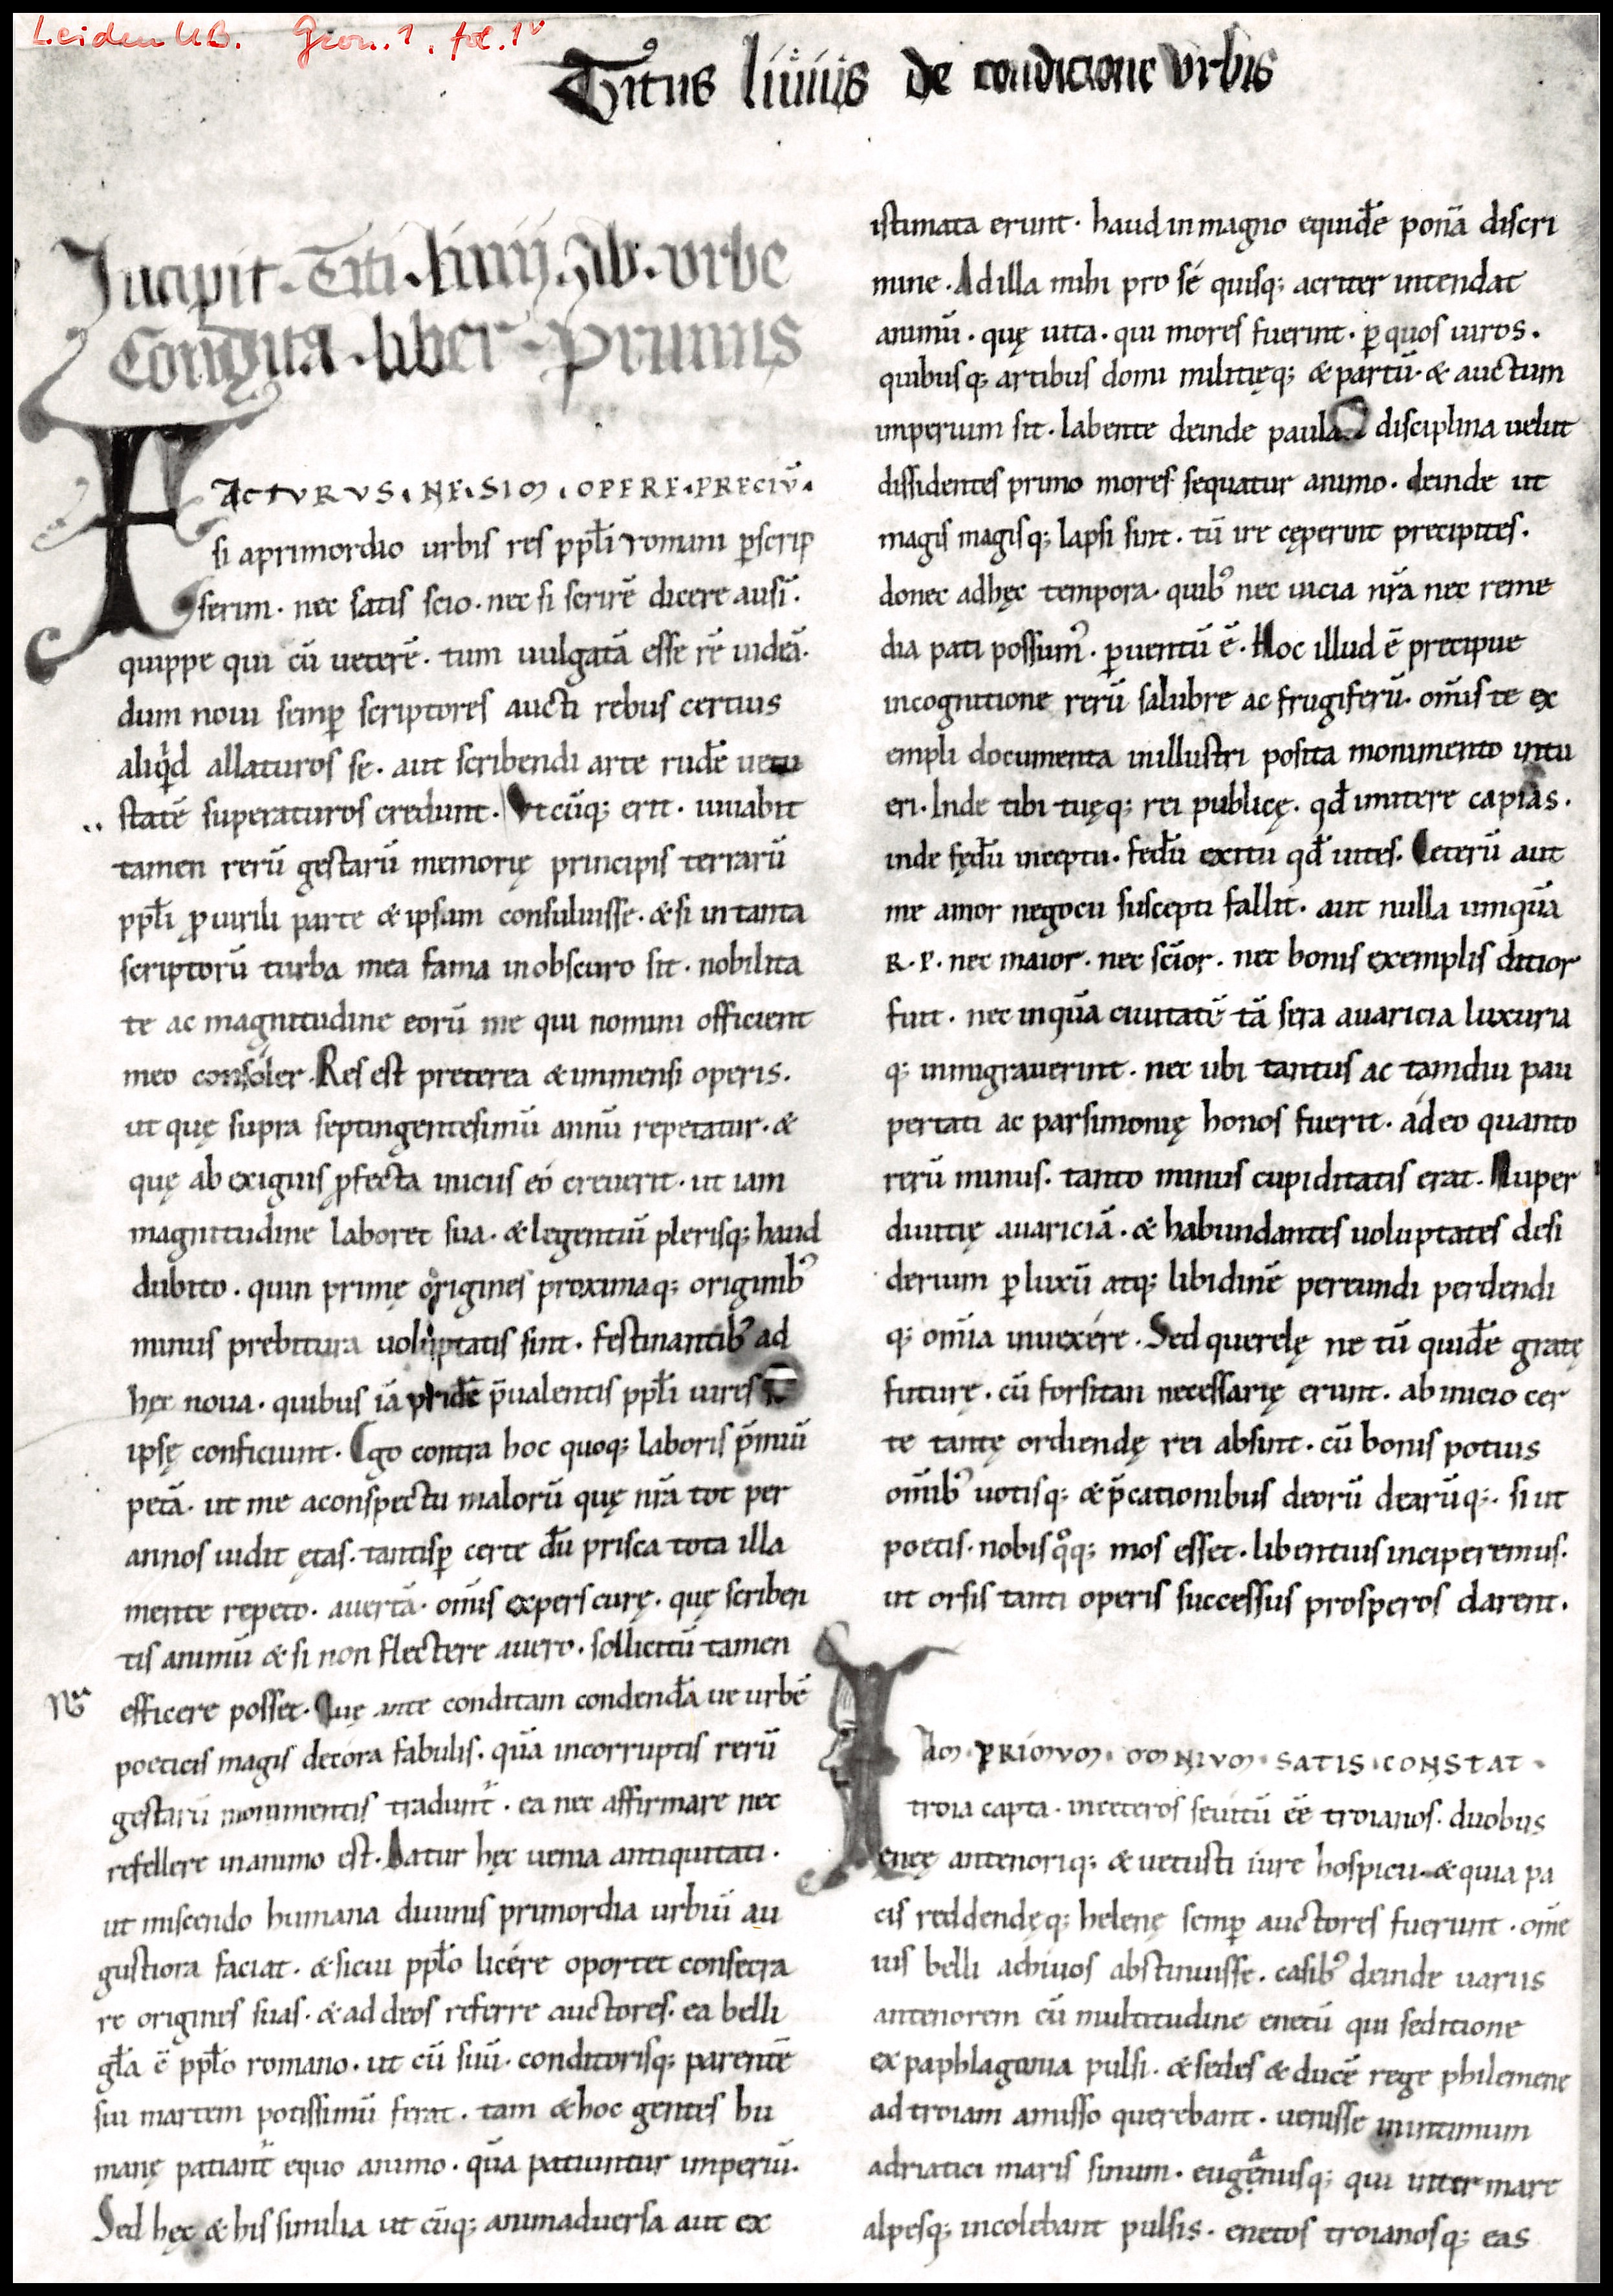 Leiden UB. Gron. 1, fol. 1v
Titus liuius de condicione urbis
Incipit · Titi · liuij · Ab · urbe
Condita · liber · primus
FACTURUS · NE · SIM · OPERE · PRECIŪ ·
si aprimordio urbis res pp̄li romani ꝑscrip
serim · nec satis scio · nec si scirē dicere ausī ·
quippe qui cū ueterē · tum uulgatā esse rē uideā ·
dum noui semꝑ scriptores aucti rebus certius
aliqd̄ allaturos se · aut scribendi arte rudē uetu
statē superaturos credunt · Vtcūq; erit · iuuabit
tamen rerū gestarū memorię principis terrarū
pp̄li ꝓuirili parte & ipsum consuluisse · & si intanta
scriptorū turba mea fama inobscuro sit · nobilita
te ac magnitudine eorū me qui nomini officient
meo consoler · Res est preterea & immensi operis ·
ut quę supra septingentesimū annū repetatur · &
quę ab exiguis ꝓfecta iniciis eó creuerit · ut iam
magnitudine laboret sua · & legentiū plerisq; haud
dubito · quin primę origines proximaq; originibꝰ
minus prebitura uoluptatis sint · festinantibꝰ ad
hęc noua · quibus iā pridē p̄ualentis pp̄li uires
ipsę conficiunt · Ego contra hoc quoq; laboris p̄miū
petā · ut me aconspectu malorū quę nr̄a tot per
annos uidit ętas · tantisꝑ certe dū prisca tota illa
mente repeto · auertā · om̄is expers curę · quę scriben
tis animū & si non flectere auero · sollicitū tamen
efficere posset · Quę ante conditam condendā ue urbē
poeticis magis decora fabulis · quā incorruptis rerū
gestarū monimentis tradunt̄ · ea nec affirmare nec
refellere inanimo est · Datur hęc uenia antiquitati ·
ut miscendo humana diuinis primordia urbiū au
gustiora faciat · & sicui pp̄lo licére oportet consecra
re origines suas · & ad deos referre auctores · ea belli
gl̄a ē pp̄lo romano · ut cū suū · conditorisq; parentē
sui martem potissimū ferat · tam & hoc gentes hu
manę patiant̄ equo animo · quā patiuntur imperiū ·
Sed hęc & his similia ut cūq; animaduersa aut ex
istimata erunt · haud inmagno equidē ponā discri
mine · Ad illa mihi pro sé quisq; acriter intendat
animū · quę uita · qui mores fuerint · ꝑ quos uiros ·
quibusq; artibus domi militięq; & partū · & auctum
imperium sit · labente deinde paula disciplina uelut
dissidentes primo mores sequatur animo · deinde ut
magis magisq; lapsi sint · tū ire cęperint precipites ·
donec adhęc tempora · quibꝰ nec uicia nr̄a nec reme
dia pati possumꝰ · ꝑuentū ē · Hoc illud ē precipue
incognitione rerū salubre ac frugiferū · om̄is te ex
empli documenta inillustri posita monumento intu
eri · Inde tibi tuęq; rei publicę · qd̄ imitere capias ·
inde fędū inceptu · fedū exitu qd̄ uites · Ceterū aut
me amor negocii suscepti fallit · aut nulla umquā
R · P · nec maior · nec sc̄ior · nec bonis exemplis ditior
fuit · nec inquā ciuitatē tā sera auaricia luxuria
q; inmigrauerint · nec ubi tantus ac tamdiu pau
pertati ac parsimonię honos fuerit · ádeo quanto
rerū minus · tanto minus cupiditatis erat · Nuper
diuitię auariciā · & habundantes uoluptates desi
derium ꝑ luxū atq; libidinē pereundi perdendi
q; om̄ia inuexére · Sed querelę ne tū quidē gratę
futurę · cū forsitan necessarię erunt · ab inicio cer
te tantę ordiendę rei absint · cū bonis potius
om̄ibꝰ uotisq; & p̄cationibus deorū dearūq; · si ut
poetis · nobis qͦq; mos esset · libentius inciperemus ·
ut orsis tanti operis successus prosperos darent ·
IAM · PRIMUM · OMNIUM · SATIS · CONSTAT ·
troia capta · inceteros seuitū eē troianos · duobus
enęę antenoriq; & uetusti iure hospicii · & quia pa
cis reddendęq; helenę semꝑ auctores fuerunt · om̄e
ius belli achiuos abstinuisse · casibꝰ deinde uariis
antenorem cū multitudine enetū qui seditione
ex paphlagonia pulsi · & sedes & ducē rege philemene
ad troiam amisso querebant · uenisse inintimum
adriatici maris sinum · euganeusq; qui inter mare
alpesq; incolebant pulsis · enetos troianosq; eas